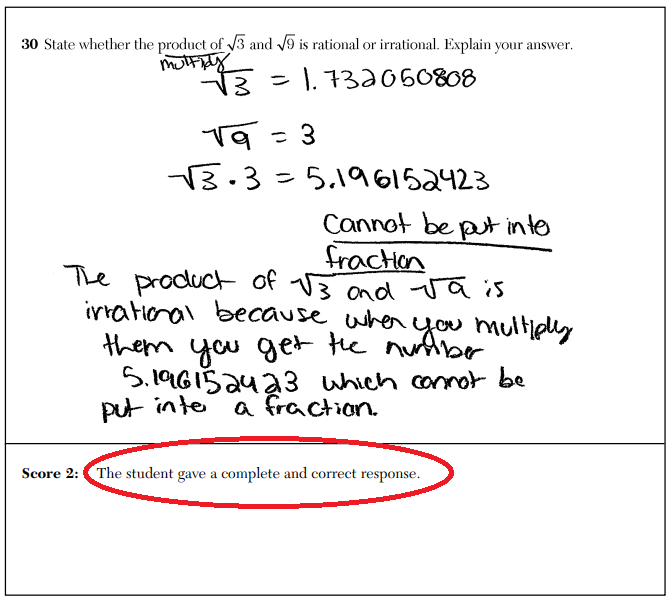 30 State whether the product of √3 and √9 is rational or irrational. Explain your answer.
multiply
√3 = 1.732050808
√9 = 3
√3 · 3 = 5.196152423
Cannot be put into
fraction
The product of √3 and √9 is
irrational because when you multiply
them you get the number
5.196152423 which cannot be
put into a fraction.
Score 2: The student gave a complete and correct response.